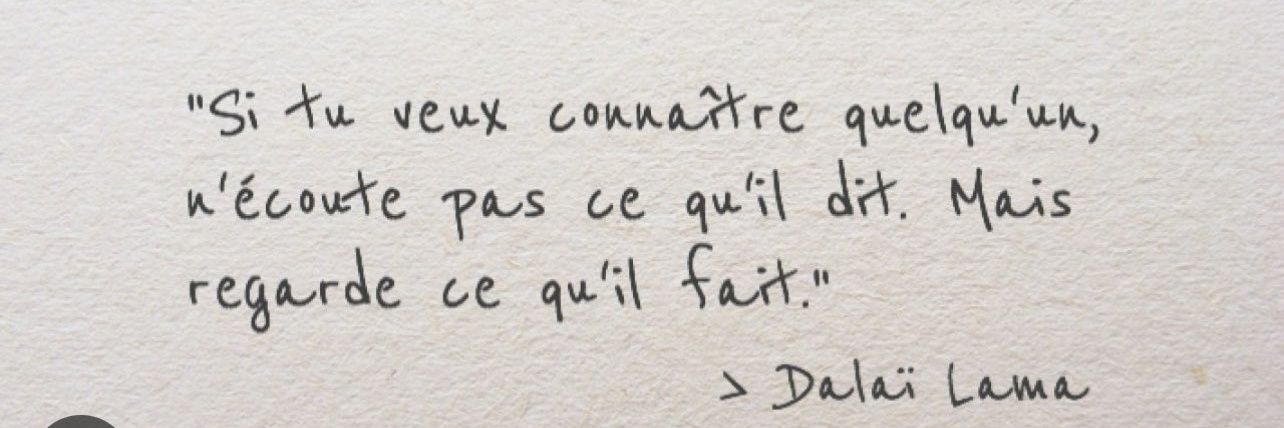 "Si tu veux connaître quelqu'un,
n'écoute pas ce qu'il dit. Mais
regarde ce qu'il fait."
> Dalaï Lama